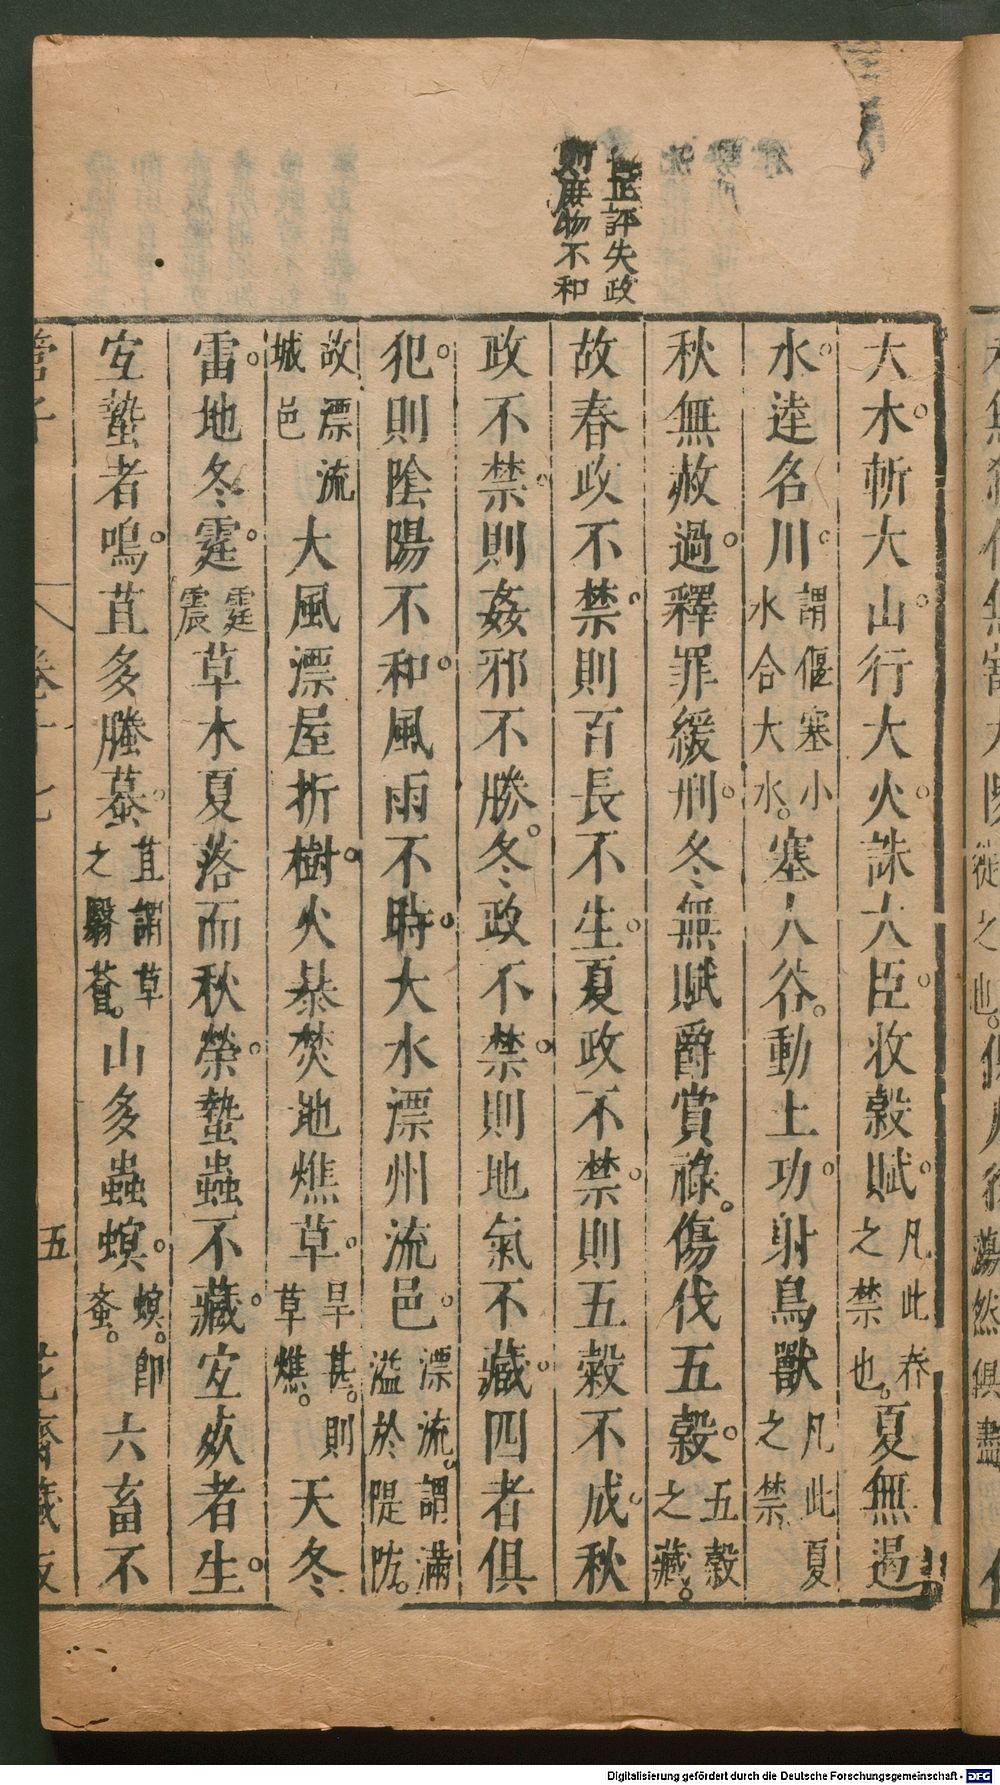 正評失政
則庶物不和
大木斬大山行大火誅大臣收穀賦凡此春之禁也夏無遏
水逹名川謂偃塞小水合大水塞大谷動土功射鳥獸凡此夏之禁
秋無赦過釋罪緩刑冬無賦爵賞祿傷伐五穀五穀之藏
故春政不禁則百長不生夏政不禁則五穀不成秋
政不禁則姦邪不勝冬政不禁則地氣不藏四者俱
犯則陰陽不和風雨不時大水漂州流邑漂流謂滿溢於隄防
故漂流城邑大風漂屋折樹火暴焚地燋草旱甚則草燋天冬
雷地冬霆霆震草木夏落而秋榮蟄蟲不藏宜死者生
宜蟄者鳴苴多螣蟇苴謂草之翳薈山多蟲螟螟即䖟六畜不
管子 卷十七 五 花齋藏板
Digitalisierung gefördert durch die Deutsche Forschungsgemeinschaft - DFG